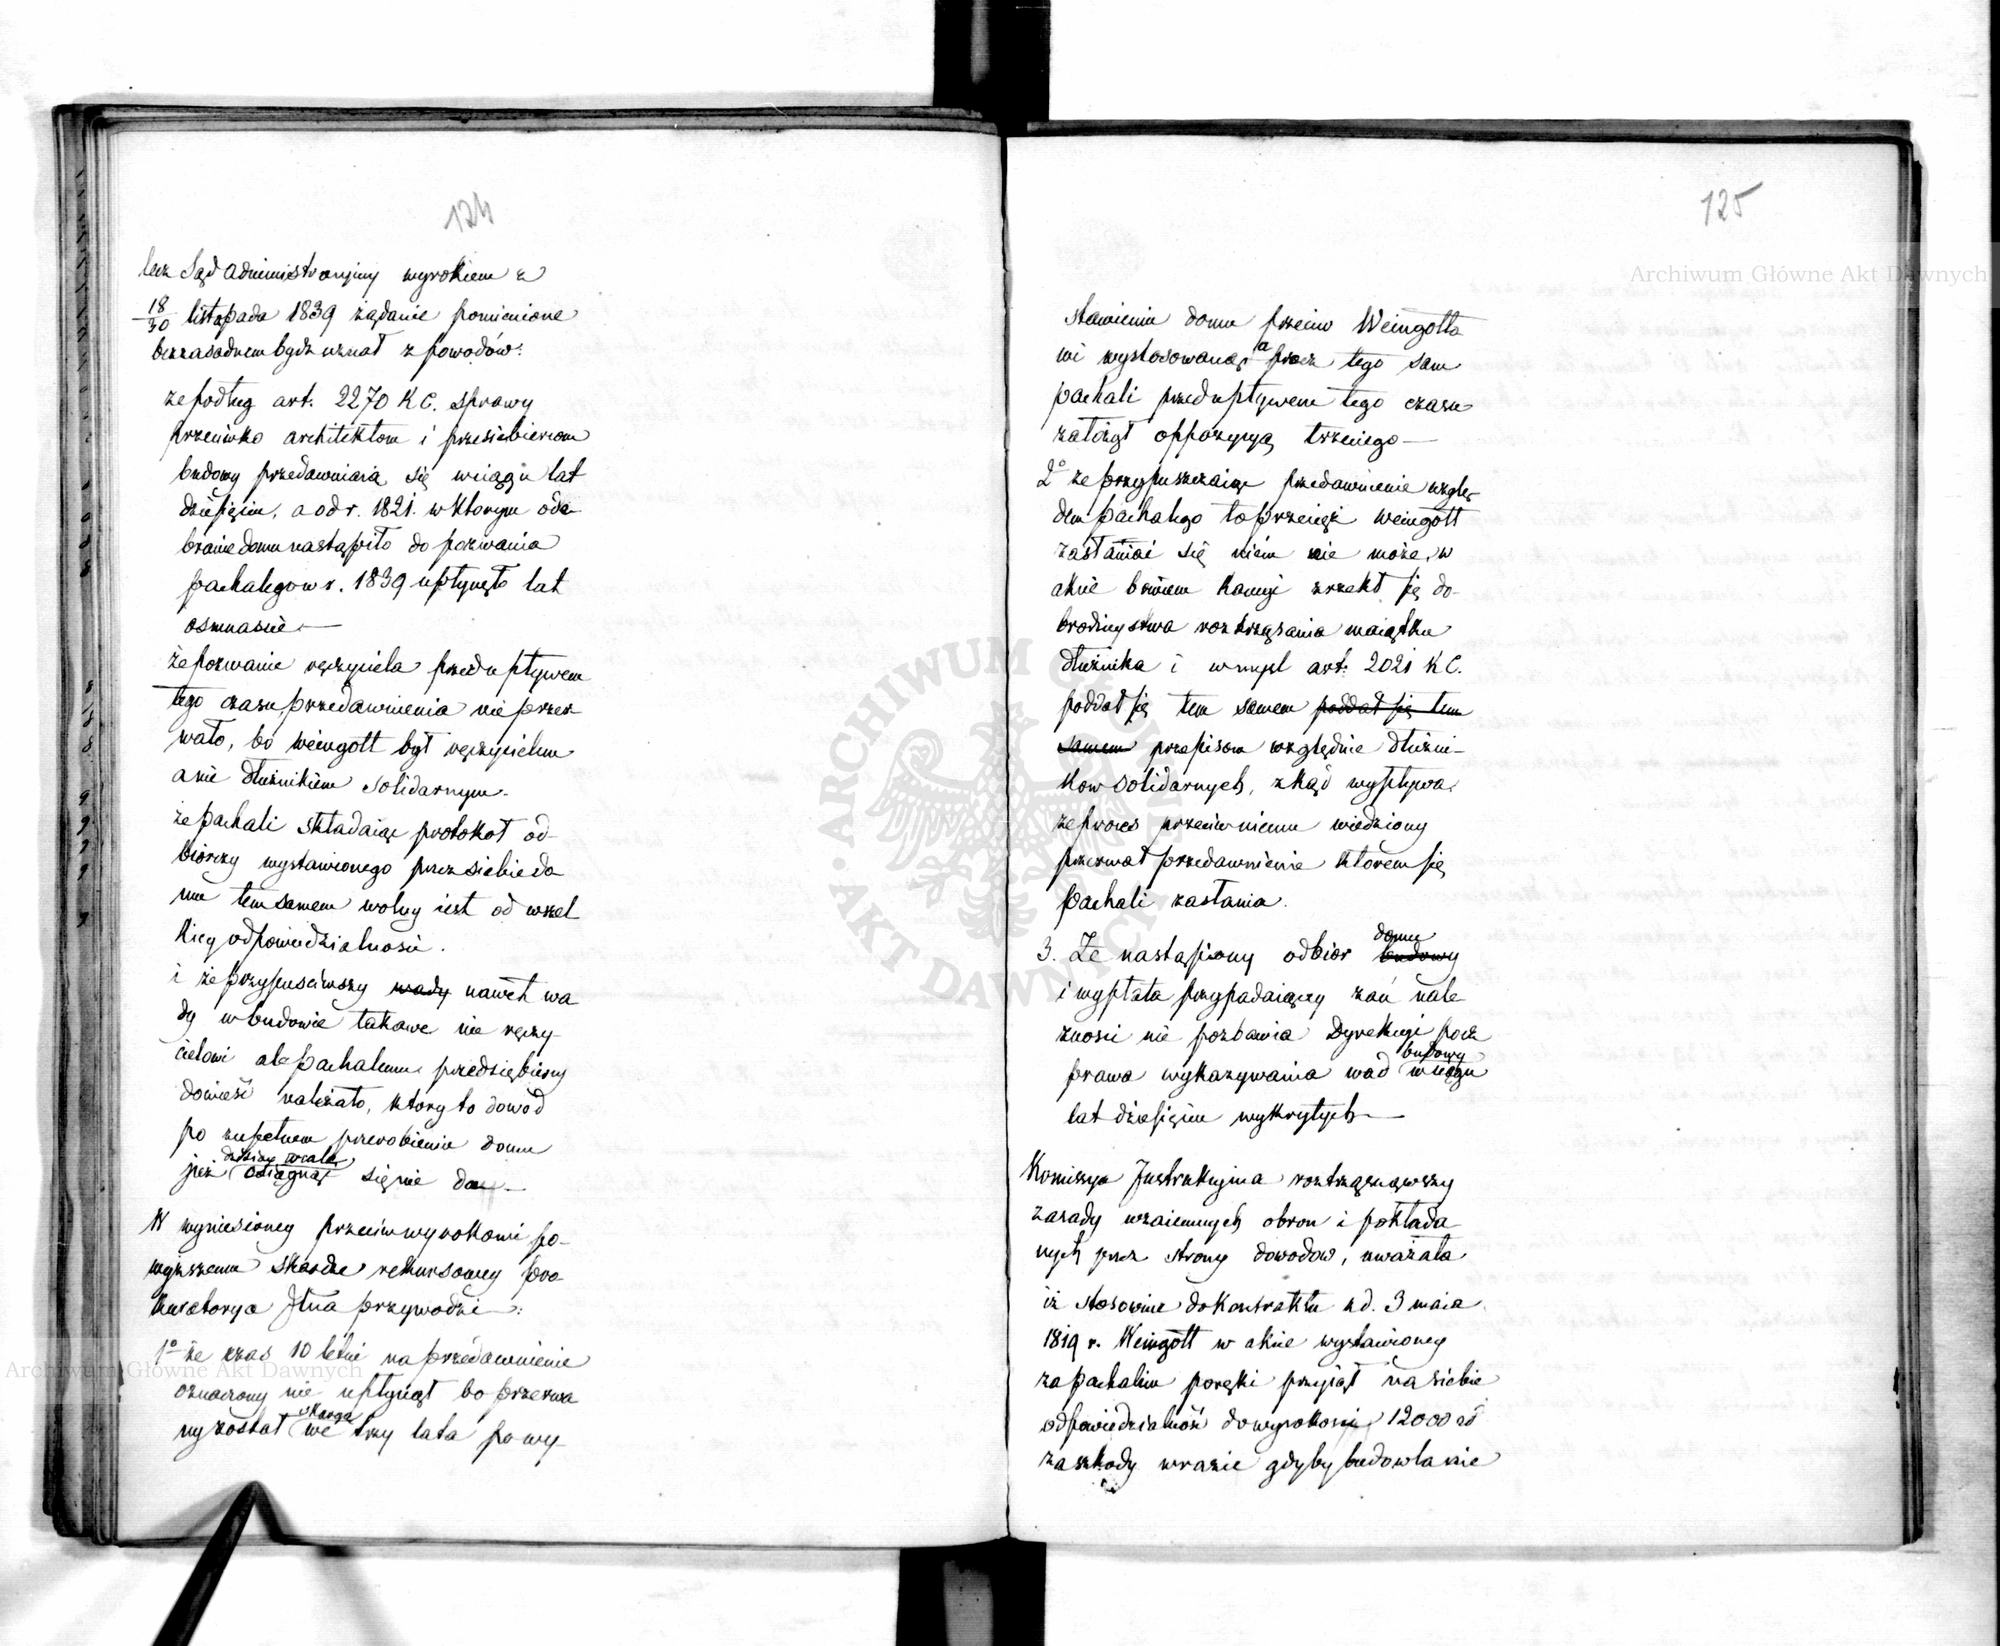 124
lecz Sąd administracyiny wyrokiem z
18/30 listopada 1839 żądanie pomienione
bezzasadnem bydz uznał z powodów:
że podług art. 2270 KC. sprawy
przeciwko architektom i przesiebiercom
budowy przedawniaią się wciągu lat
dziesięciu, a od r. 1821. w ktorym ode
branie domu nastąpiło do pozwania
Pachalego w r. 1839 upłynęło lat
osmnascie.—
że pozwanie ręczyciela przed upływem
tego czasu, przedawnienia nie przer
wało, bo Weingott był ręczycielem
a nie dłużnikiem solidarnym.
że Pachali składaiąc protokoł od-
biorczy wystawionego przez siebie do
mu tem samem wolny iest od wszel
kiey odpowiedzialnosci.
i że przypusciwszy wady nawet wa
dy w budowie takowe nie ręczy-
cielowi ale Pachalemu przedsiębiercy
dowieść należało, ktory to dowod
po zupełnem przerobieniu domu
dzisiay wcale
już osiągnąć się nie da.—
W wyniesioney przeciw wyrokowi po-
wyższemu skardze rekursowey Pro-
kuratorya Jlna przywodzi:
1° że czas 10 letni na przedawnienie
oznaczony nie upłynął bo przerwa
skarga
ny został we trzy lata po wy-
125
stawieniu domu przeciw Weingotto
wi wystosowaną a przez tego sam
Pachali przed upływem tego czasu
założył oppozycyą trzeciego—
2° że przypuszczaiąc przedawnienie wzglę
dem Pachalego to przecięż Weingott
zasłaniać się niém nie może, w
akcie bowiem kaucyi zrzekł się do-
brodzieystwa roztrząsania maiątku
dłużnika i w mysl art: 2021 KC.
poddał się tem samem poddał się tem
samem przepisom względnie dłużni-
kow solidarnych, zkąd wypływa,
że proces przeciw niemu wiedziony
przerwał przedawnienie ktorem się
Pachali zasłania.
domu
3. Że nastąpiony odbior budowy
i wypłata przypadaiącey zań nale
znosci nie pozbawia Dyrekcyi Pocz
budowy
prawa wykazywania wad wciągu
lat dziesięciu wykrytych—
Komissya Instrukcyina roztrząsnąwszy
zasady wzaiemnych obron i pokłada
nych przez strony dowodow, uważała
iż stosownie do kontraktu z d. 3 maia
1819 r. Weingott w akcie wystawioney
za Pachalim poręki przyiął na siebie
odpowiedzialność do wysokosci 12000 zł
za szkody w razie gdyby budowla nie